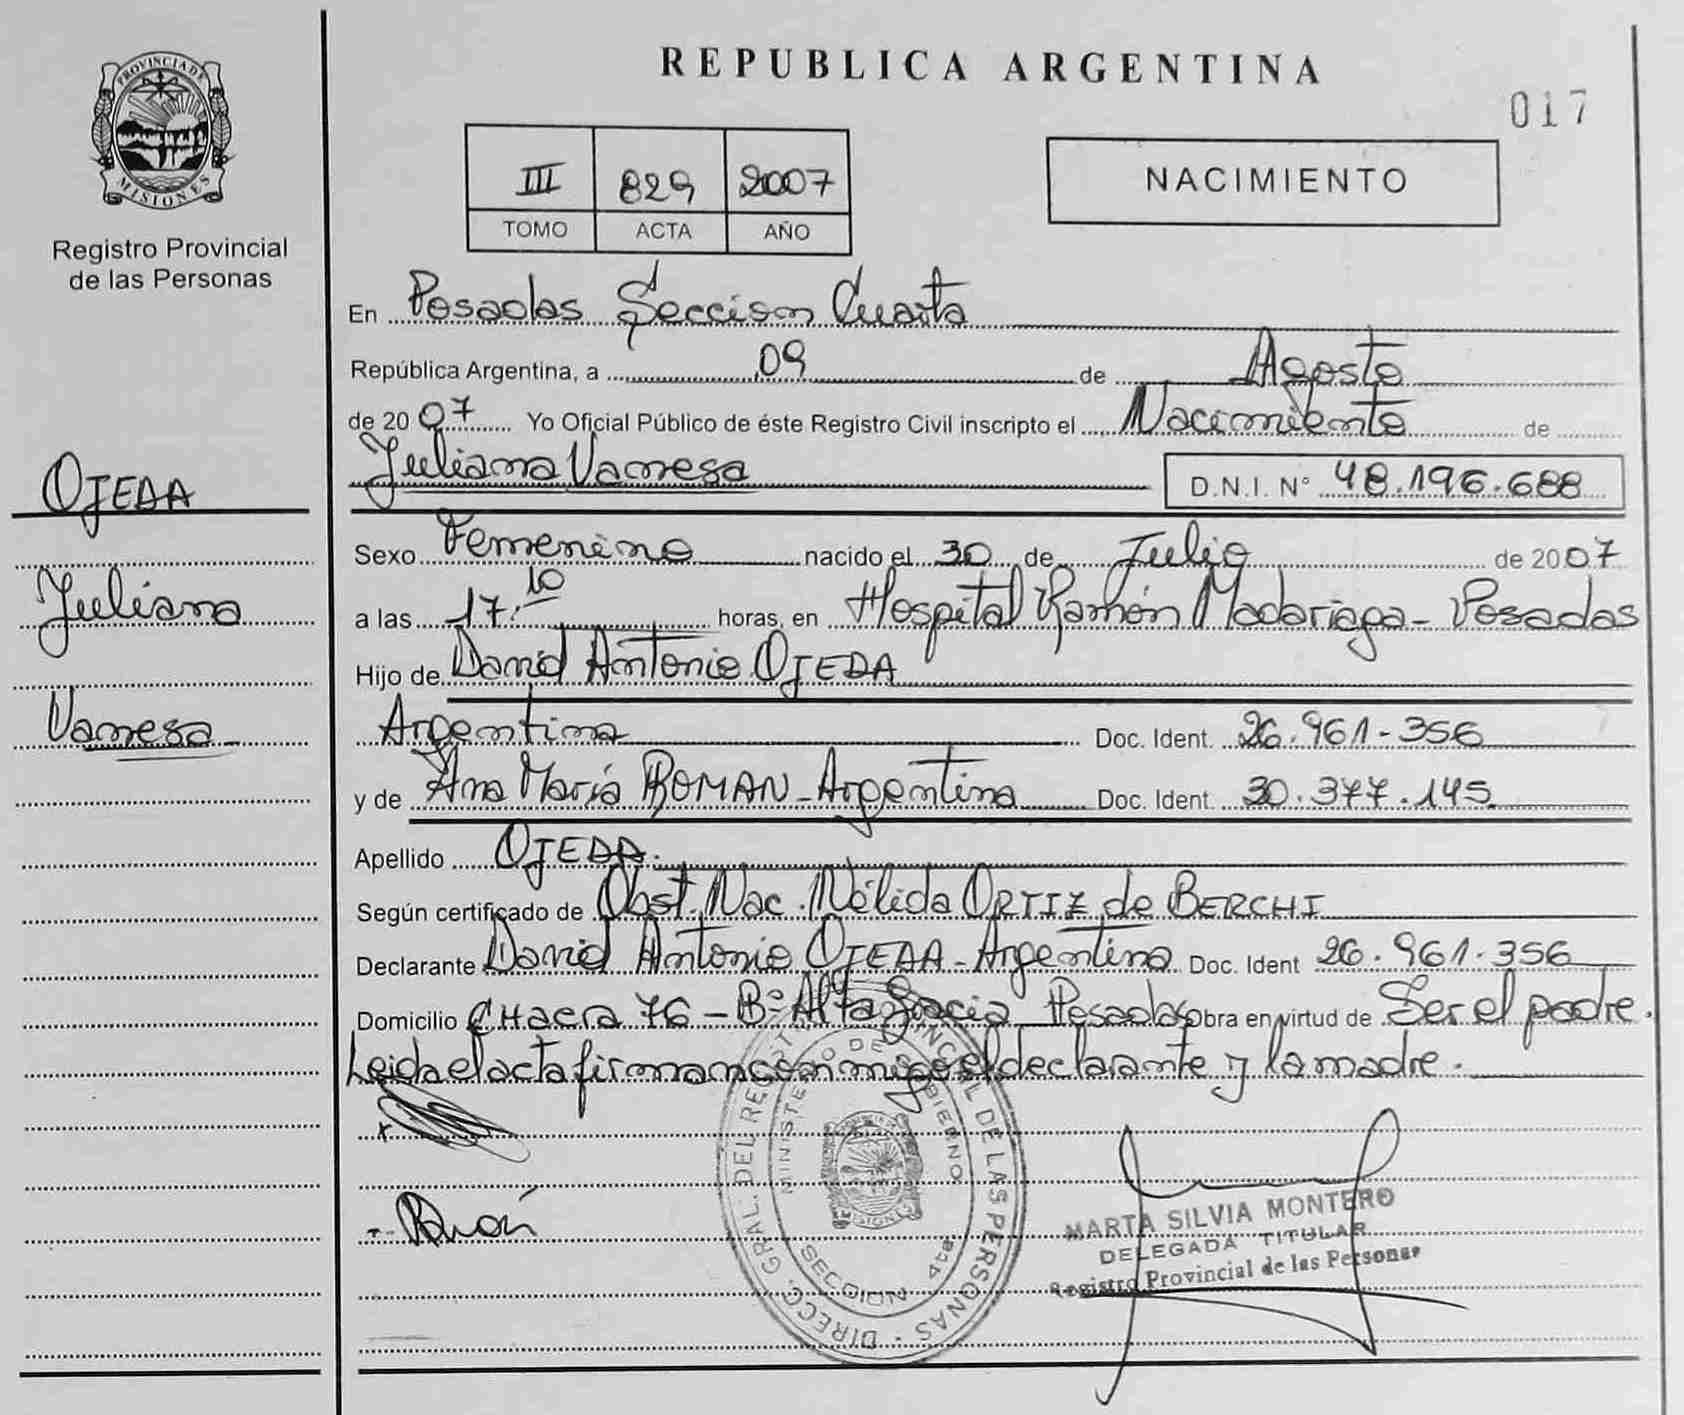 PROVINCIA DE
MISIONES
Registro Provincial
de las Personas
OJEDA
Juliana
Vanesa
REPUBLICA ARGENTINA
017
III 829 2007
TOMO ACTA AÑO
NACIMIENTO
En Posadas Seccion Cuarta
República Argentina, a 09 de Agosto
de 20 07 Yo Oficial Público de éste Registro Civil inscripto el Nacimiento de
Juliana Vanesa D.N.I. N° 48.196.688
Sexo Femenino nacido el 30 de Julio de 20 07
a las 17.10 horas, en Hospital Ramón Madariaga - Posadas
Hijo de David Antonio OJEDA
Argentina Doc. Ident. 26.961-356
y de Ana María ROMAN - Argentina Doc. Ident. 30.377.145
Apellido OJEDA.
Según certificado de Obst. Nac. Nélida ORTIZ de BERCHI
Declarante David Antonio OJEDA - Argentina Doc. Ident 26.961.356
Domicilio CHacra 76 - B° Alta Gracia Posadas obra en virtud de Ser el padre.
Leida el acta firman conmigo el declarante y la madre.
DIRECC. GRAL. DEL REGISTRO PROVINCIAL DE LAS PERSONAS
MINISTERIO DE GOBIERNO
MISIONES
SECCION 4ta
MARTA SILVIA MONTERO
DELEGADA TITULAR
Registro Provincial de las Personas